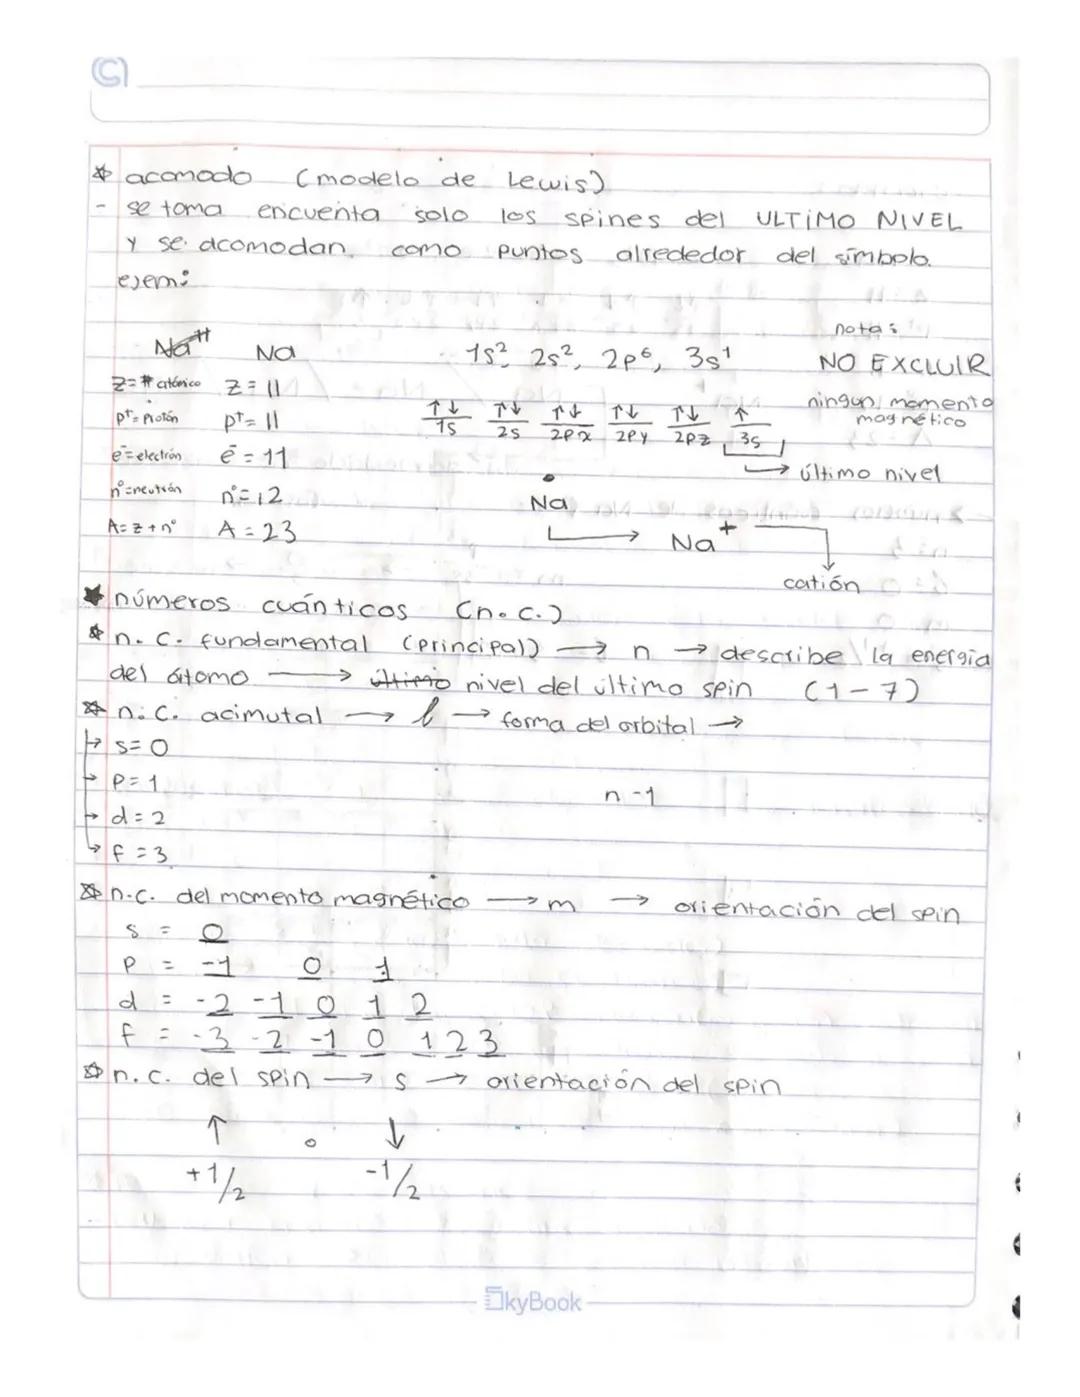 * acomodo (modelo de Lewis)
- se toma encuenta solo los spines del ULTIMO NIVEL
y se acomodan como puntos alrededor del símbolo.
ejem:
nota:
Na Na 1s², 2s², 2p⁶, 3s¹ NO EXCLUIR
z=# atómico z = 11 ningun momento
p⁺= Protón p⁺= 11 ↑↓ ↑↓ ↑↓ ↑↓ ↑↓ ↑ magnético
1s 2s 2px 2py 2pz 3s
ē=electrón ē = 11 → último nivel
n°=neutrón n°=12 Na
A= z + n° A = 23 → Na⁺
catión
★ números cuánticos (n.c.)
* n. c. fundamental (principal) → n → describe la energia
del átomo → último nivel del último spin (1-7)
* n.c. acimutal → l → forma del orbital →
→ s= 0
→ p= 1
n -1
→ d = 2
→ f = 3
* n.c. del momento magnético → m → orientación del spin
s = 0
p = -1 0 1
d = -2 -1 0 1 2
f = -3 -2 -1 0 1 2 3
* n.c. del spin → s → orientación del spin
↑ o ↓
+1/2 -1/2
SkyBook